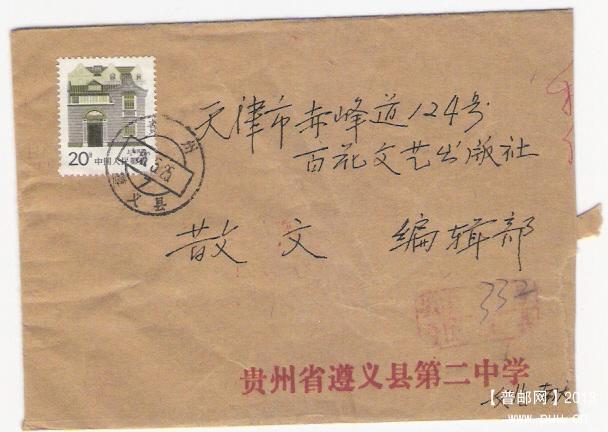 天津市赤峰道124号
百花文艺出版社
散文 编辑部
20分
中国人民邮政
332
贵州省遵义县第二中学
【普邮网】2013
www.puu.cn